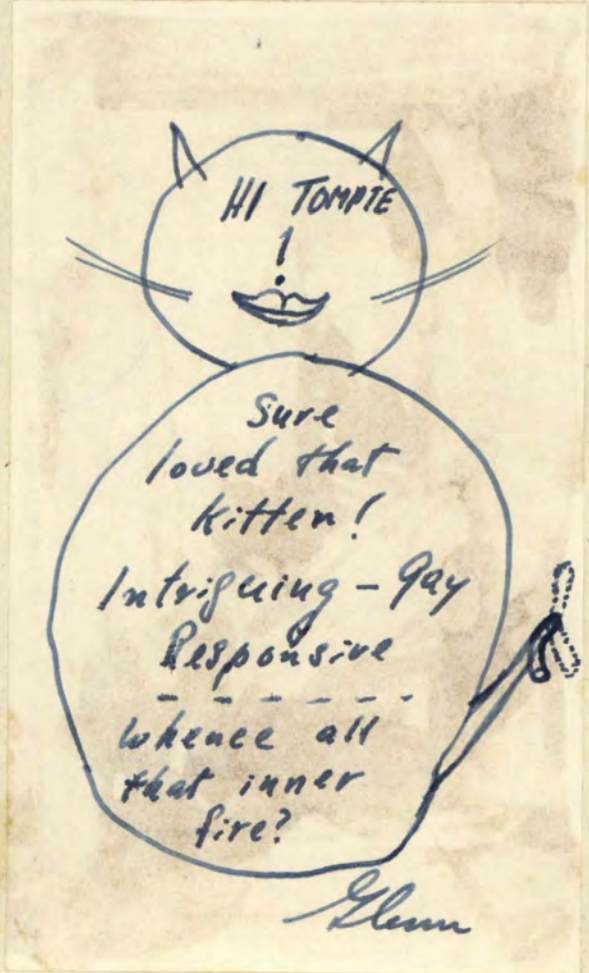 HI TOMPTE
!
Sure
loved that
kitten!
Intriguing - Gay
Responsive
- - - - - -
Whence all
that inner
fire?
Glenn